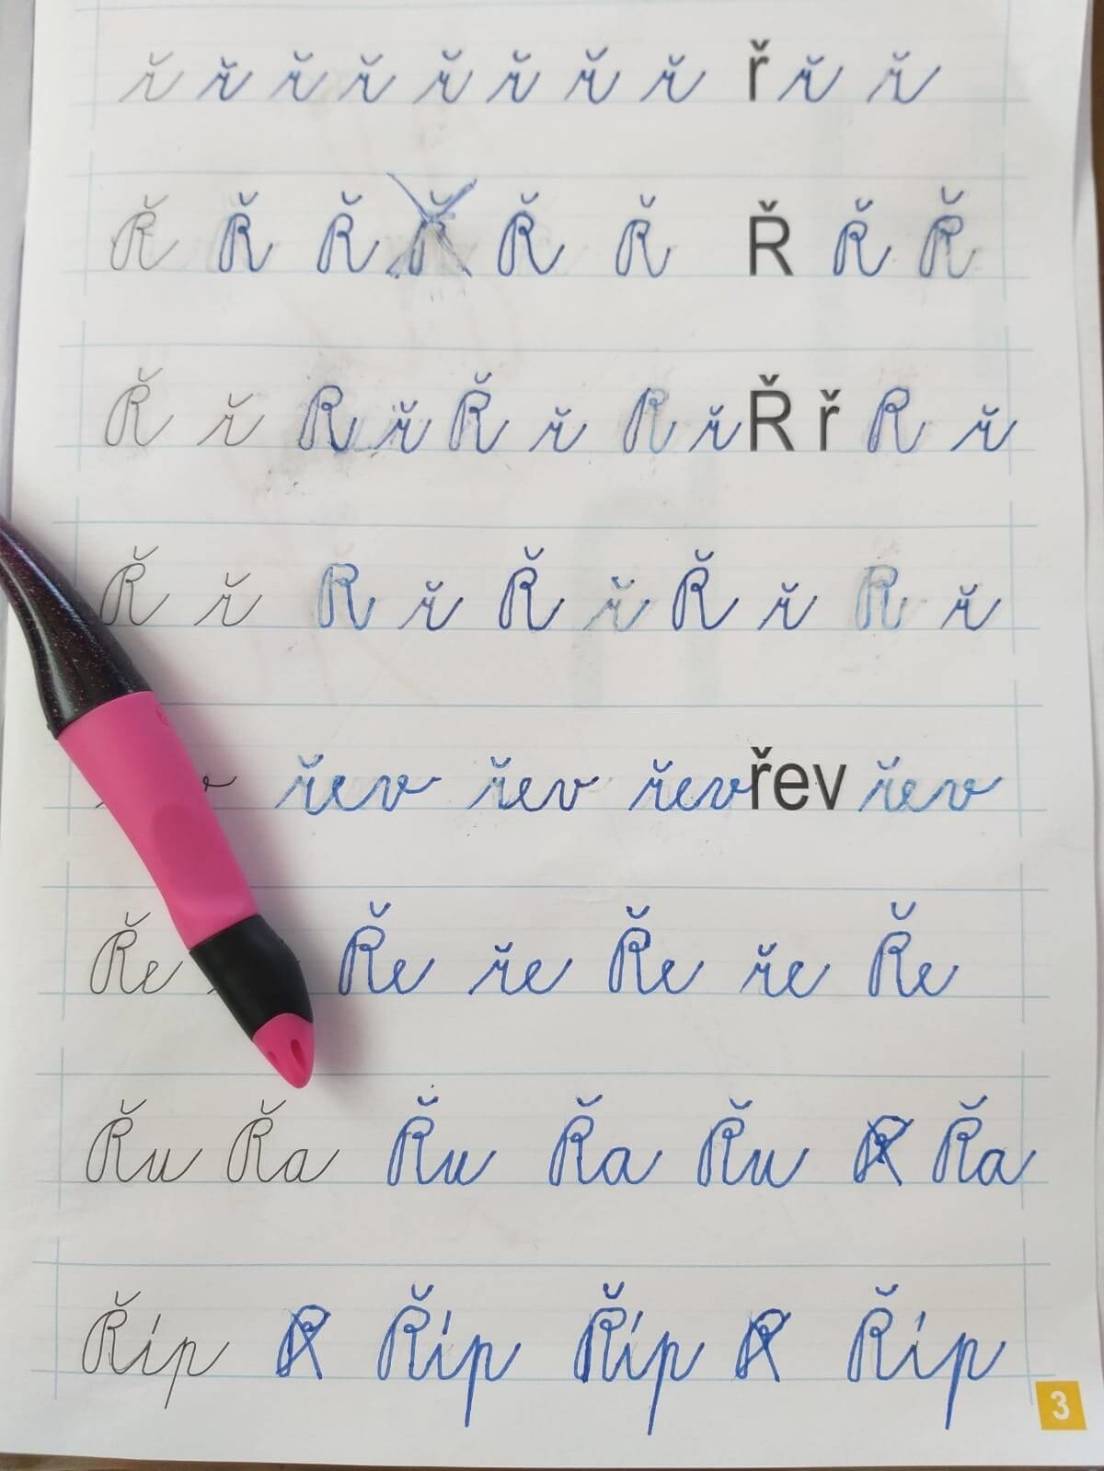 ř ř ř ř ř ř ř ř ř ř ř
Ř Ř Ř Ř Ř Ř Ř Ř
Ř ř R ř Ř ř R ř Ř ř R ř
Ř ř Ř ř Ř ř Ř ř R ř
řev řev řev řev řev
Ře Ře ře Ře ře Ře
Řu Řa Řu Řa Řu Řa
Říp Říp Říp Říp
3